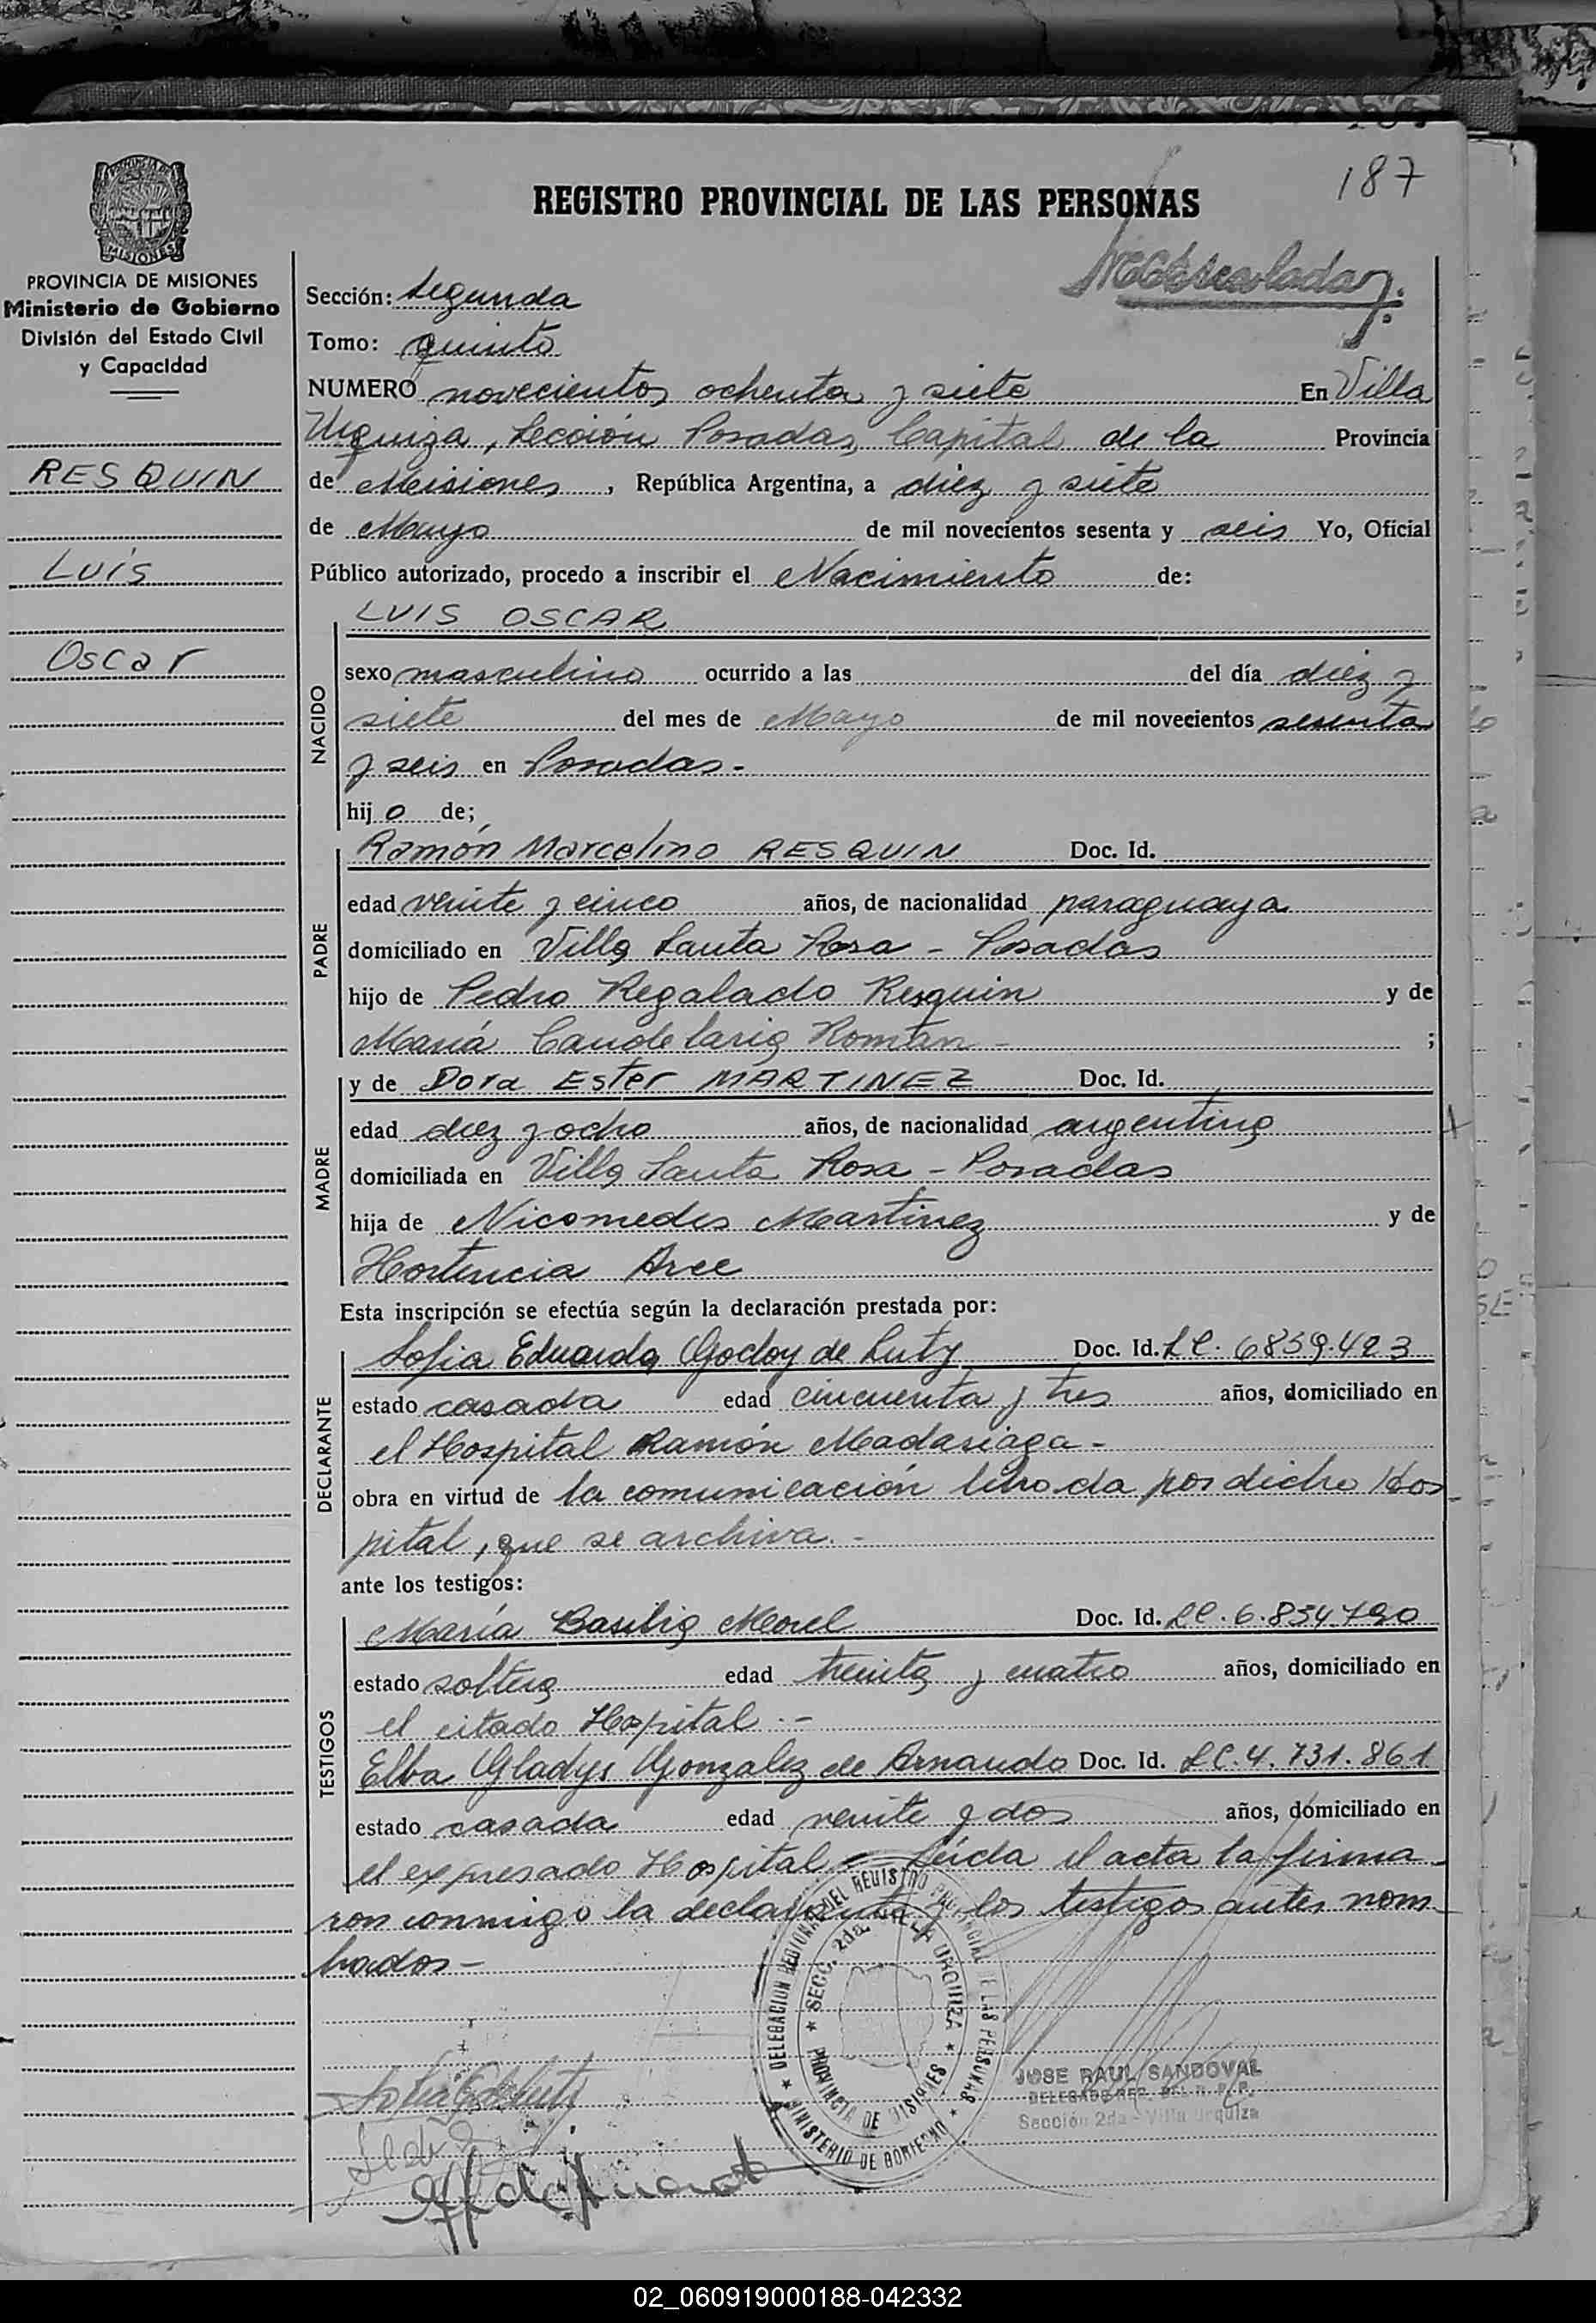 187
REGISTRO PROVINCIAL DE LAS PERSONAS
PROVINCIA DE MISIONES
Ministerio de Gobierno
División del Estado Civil
y Capacidad
RESQUIN
Luis
Oscar
Sección: Segunda
Tomo: quinto
NUMERO novecientos ochenta y siete En Villa
Urquiza, Sección Posadas, Capital de la Provincia
de Misiones, República Argentina, a diez y siete
de Mayo de mil novecientos sesenta y seis Yo, Oficial
Público autorizado, procedo a inscribir el Nacimiento de:
LUIS OSCAR
NACIDO
sexo masculino ocurrido a las del día diez y
siete del mes de Mayo de mil novecientos sesenta
y seis en Posadas.-
hijo de;
PADRE
Ramón Marcelino RESQUIN Doc. Id.
edad veinte y cinco años, de nacionalidad paraguaya
domiciliado en Villa Santa Rosa - Posadas
hijo de Pedro Regalado Resquin y de
María Candelaria Román - ;
MADRE
y de Dora Ester MARTINEZ Doc. Id.
edad diez y ocho años, de nacionalidad argentina
domiciliada en Villa Santa Rosa - Posadas
hija de Nicomedes Martinez y de
Hortencia Arce
Esta inscripción se efectúa según la declaración prestada por:
DECLARANTE
Sofia Eduarda Godoy de Luty Doc. Id. LC. 6859.423
estado casada edad cincuenta y tres años, domiciliado en
el Hospital Ramón Madariaga.-
obra en virtud de la comunicación librada por dicho Hos
pital, que se archiva.-
ante los testigos:
TESTIGOS
María Basilia Morel Doc. Id. LC. 6.854.790
estado soltera edad treinta y cuatro años, domiciliado en
el citado Hospital.-
Elba Gladys Gonzalez de Arnaudo Doc. Id. LC. 4.731.861
estado casada edad veinte y dos años, domiciliado en
el expresado Hospital.- Leída el acta la firma
ron conmigo la declarante y los testigos antes nom
brados-
DELEGACION REGIONAL DEL REGISTRO PROVINCIAL DE LAS PERSONAS
MINISTERIO DE GOBIERNO
SECC. 2da. VILLA URQUIZA
PROVINCIA DE MISIONES
JOSE RAUL SANDOVAL
DELEGADO REG. DEL R. P. P.
Sección 2da - Villa Urquiza
02_060919000188-042332